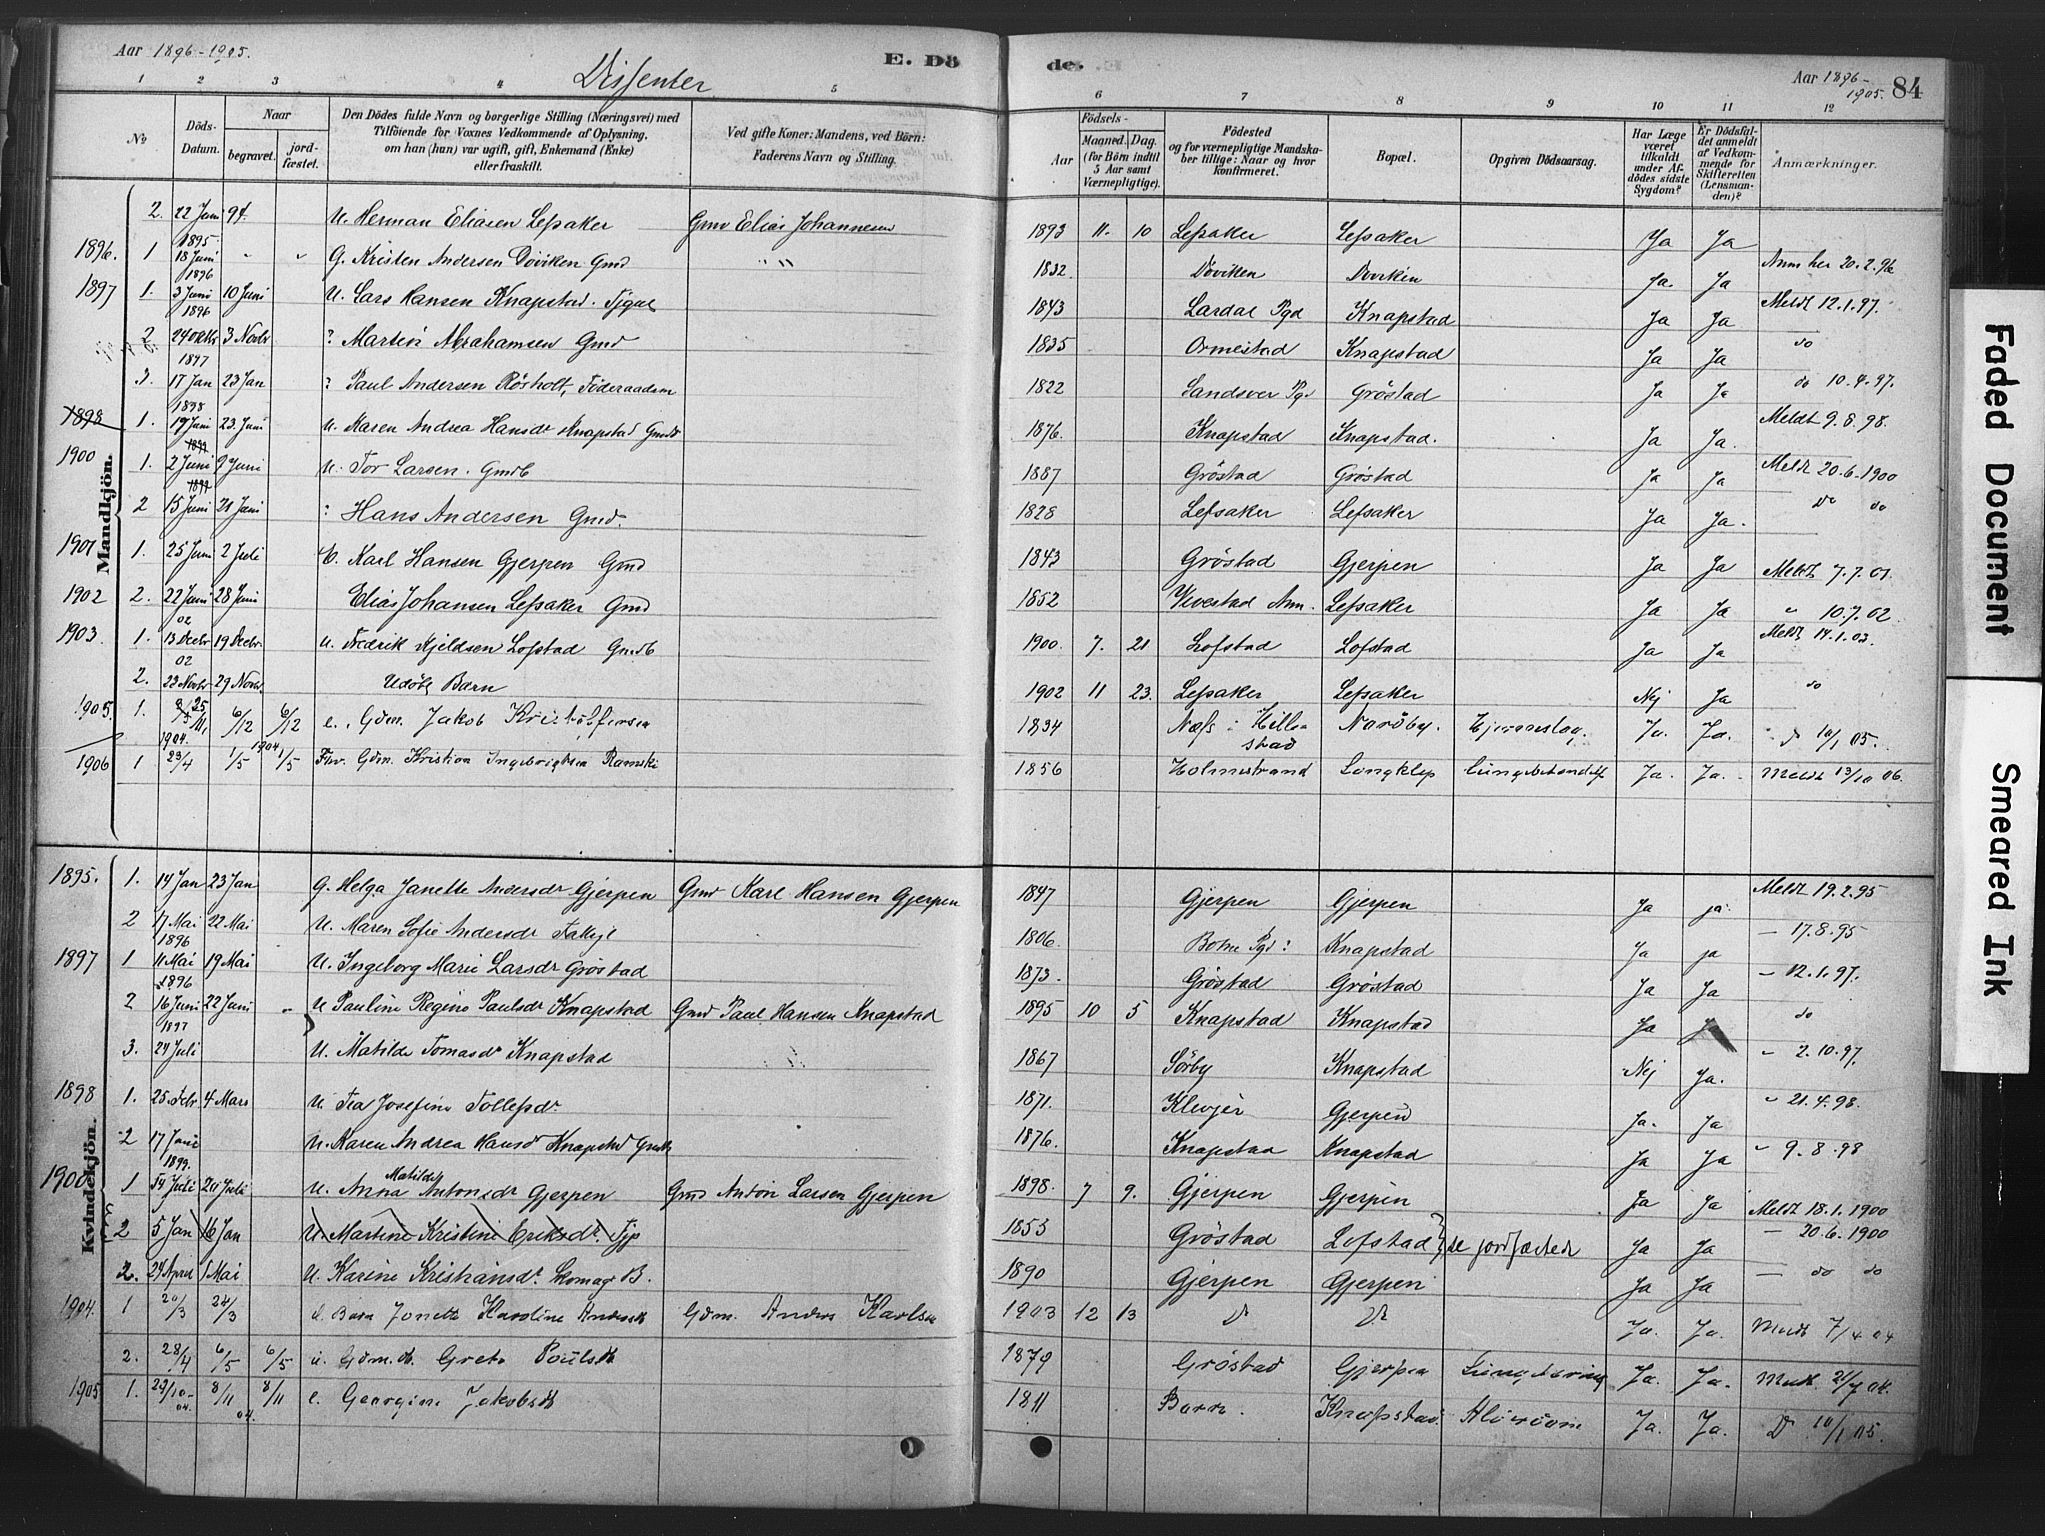 Aar 1896-1905.
Dissenter
E. Döde.
Aar 1896-1905.
84
1 2 3 4 5 6 7 8 9 10 11 12
No
Döds-Datum.
Naar
begravet.
jordfæstet.
Den Dödes fulde Navn og borgerlige Stilling (Næringsvei) med
Tilföiende for Voxnes Vedkommende af Oplysning,
om han (hun) var ugift, gift, Enkemand (Enke)
eller fraskilt.
Ved gifte Koner: Mandens, ved Börn:
Faderens Navn og Stilling.
Födsels-
Aar
Maaned. Dag.
(for Börn indtil
5 Aar samt
Værnepligtige).
Födested
og for værnepligtige Mandskaber tillige: Naar og hvor
konfirmeret.
Bopæl.
Opgiven Dödsaarsag.
Har Læge
været
tilkaldt
under Afdödes sidste
Sygdom?
Er Dödsfaldet anmeldt
af Vedkommende for
Skifteretten
(Lensmanden)?
Anmærkninger.
Mandkjön.
2. 22 Juni 94. U. Herman Eliasen Lefsaker Gmd Elias Johannesen 1893 11. 10 Lefsaker Lefsaker Ja Ja
1896. 1 1895 18 Juni " " G. Kristen Andersen Döviken Gmd " 1832 Döviken Doviken Ja. Ja Anm her 20.2.96
1897 1. 1896 3 Juni 10 Juni U. Lars Hansen Knapstad. 1843 Lardal Pgd Knapstad Ja Ja Meldt 12.1.97.
2. 1896 24 Oktbr 3 Novbr ? Martin Abrahamsen Gmd 1835 Ormestad Knapstad Ja Ja do
3. 1897 17 Jan 23 Jan ? Paul Andersen Rösholt, Föderaadsm 1822 Sandsver Pgd Gröstad Ja Ja do 10.4.97.
1898 1. 1898 17 Juni 23. Juni U. Maren Andrea Hansdr Knapstad 1876. Knapstad Knapstad. Ja Ja. Meldt 9.8.98.
1900 1. 1899 2 Juni 9 Juni U. Tor Larsen. Gmdb 1887 Gröstad Gröstad Ja Ja Meldt 20.6.1900
2 1899 15 Juni 21 Juni ? Hans Andersen Gmd. 1828 Lefsaker Lefsaker Ja Ja. Do do
1901 1. 25 Juni 2 Juli E. Karl Hansen Gjerpen Gmd 1843 Gröstad Gjerpen Ja Ja Meldt 7.7.01.
1902 2. 22 Juni 28 Juni Elias Johansen Lefsaker Gmd 1852 Vivestad Ann. Lefsaker Ja Ja " 10.7.02.
1903. 1. 02 13 Decbr 19 Decbr U. Fredrik Kjeldsen Lofstad Gmdb 1900. 7. 21 Lofstad Lofstad Ja Ja Meldt 14.1.03.
2. 02 22 Novbr 29 Novbr Udöbt Barn 1902 11 23. Lefsaker Lefsaker Nej Ja do
1905. 1. 25/11 1904. 6/12 6/12 e. Gdm. Jakob Kristoffersen 1834 Næss i Hillestad Naröby. Hjerneslag. Ja. Ja. D 10/1 05.
1906 1 23/4 1/5 1904 1/5 Fhv. Gdm. Kristian Ingebrigtsen Ramski 1856 Holmestrand Langklep Lungebetændelse Ja. Ja. Meldt 13/10 06.
Kvindekjön.
1895. 1. 14 Jan 23 Jan G. Helga Janette Andersdr Gjerpen Gmd Karl Hansen Gjerpen 1847 Gjerpen Gjerpen Ja ja Meldt 19.2.95
2 17 Mai 22 Mai U. Maren Sofie Andersdr 1806. Botne Pgd? Knapstad Ja ja - 17.8.95
1897 1 1896 11 Mai 19 Mai U. Ingeborg Marie Larsdr Gröstad 1873. Gröstad Gröstad Ja Ja " 12.1.97.
2 1896 16 Juni 22 Juni " U Pauline Regine Paulsdr Knapstad Gmd Paul Hansen Knapstad 1895 10 5 Knapstad Knapstad Ja do
3. 1897 24 Juli U. Matilde Tomasdr Knapstad 1867 Sörby Knapstad Nej Ja. " 2.10.97.
1898 1. 25. Febr 4 Mars U. Tea Josefine Tollefsdr. 1871. Klevjer Gjerpen Ja. Ja " 21.4.98.
2 17 Juni U. Karen Andrea Hansdr Knapstad 1876. Knapstad Knapstad Ja Ja " 9.8.98
1900 1 1899. 14 Juli 20 Juli U. Anna Matilde Antonsdr Gjerpen Gmd Anton Larsen Gjerpen 1898. 7 9. Gjerpen Gjerpen Ja Ja Meldt 18.1.1900
2 5 Jan 16 Jan U. Martine Kristine Eriksdr. Tjp 1853 Gröstad Lofstad de jordfæstede Ja Ja - 20.6.1900
2. 24 April 1 Mai U. Karine Kristiansdr. Skomagr B. 1890 Gjerpen Gjerpen Ja Ja - do do
1904. 1 20/3 24/3 Barn Jonette Karoline Andersdt Gdm. Anders Karlsen 1903 12 13 Do Do Ja. Ja. Meldt 7/4 04
2. 28/4 6/5 6/5 u. Gdm.dt. Grete Poulsdt 1879 Gröstad Gjerpen Ja. Ja. Meldt 21/7 04.
1905 1. 29/10-04. 8/11 04. 8/11 e. Georgine Jakobsdt 1811 Borre. Knapstad Alderdom Ja. Ja. D 10/1 05.
Faded Document
Smeared Ink